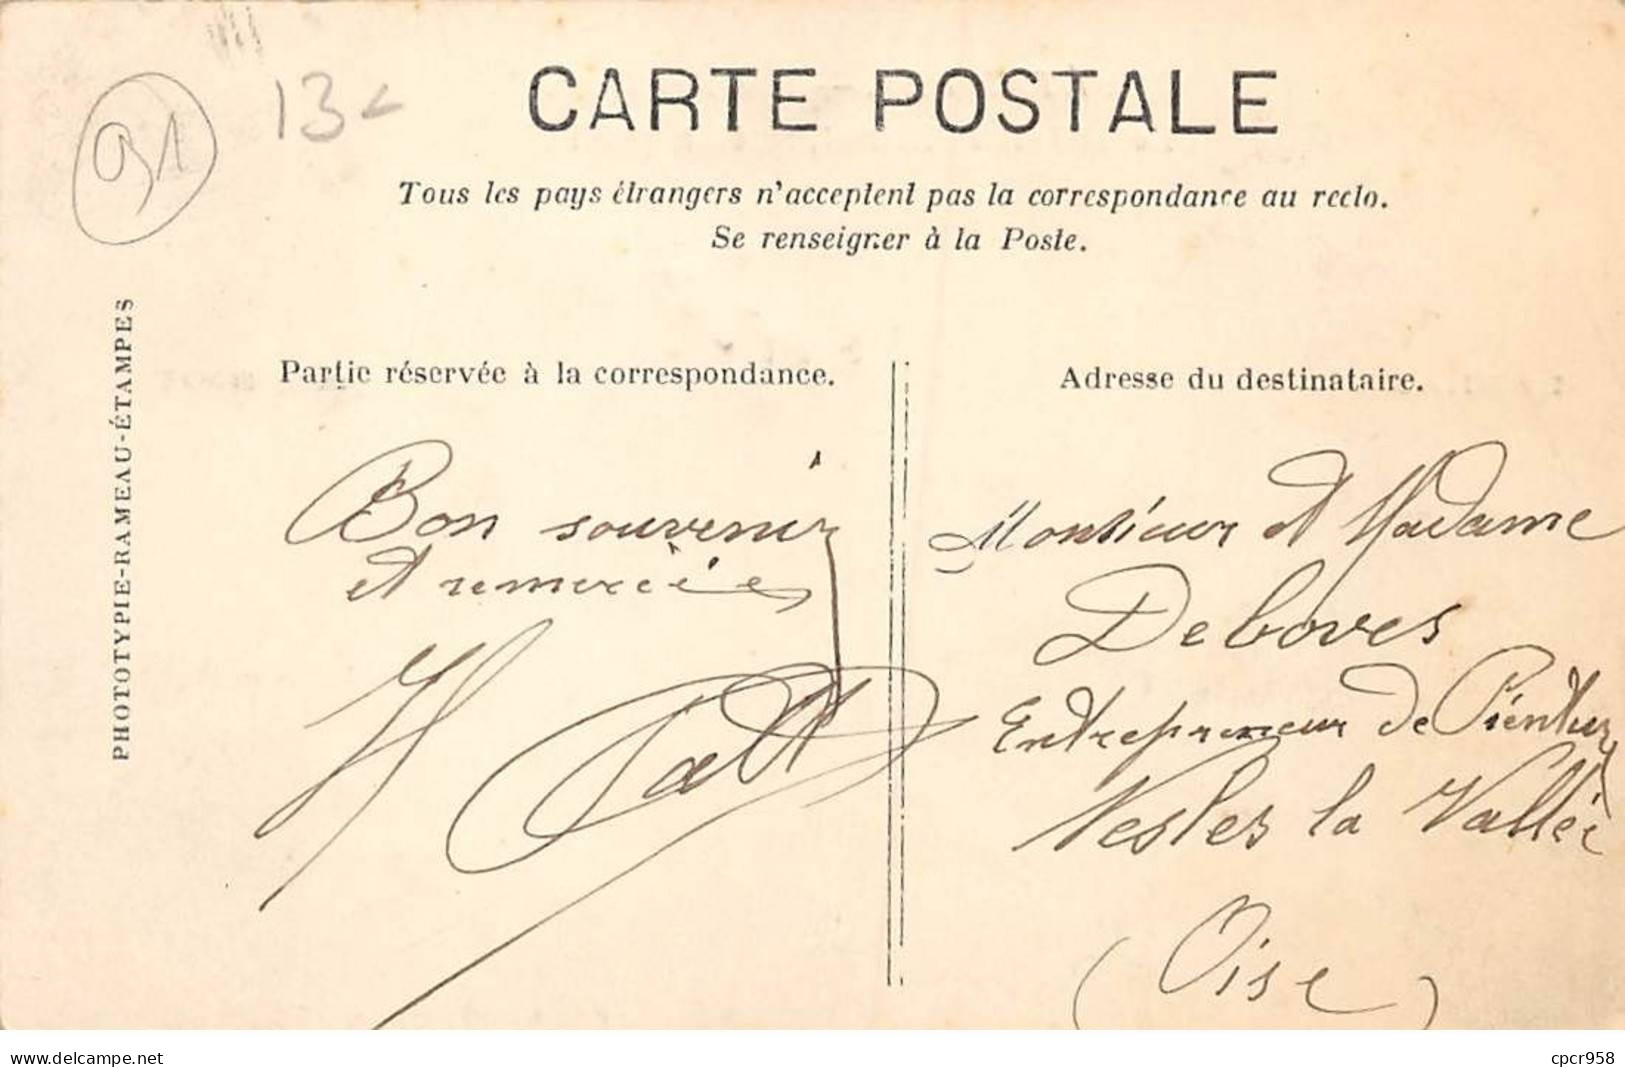 91
13
CARTE POSTALE
Tous les pays étrangers n'acceptent pas la correspondance au recto.
Se renseigner à la Poste.
PHOTOTYPIE-RAMEAU-ÉTAMPES
Partie réservée à la correspondance.
Adresse du destinataire.
Bon souvenir
et remercie
Monsieur et Madame
Deboves
Entrepreneur de
Nesles la Vallée
(Oise)
www.delcampe.net
cpcr958